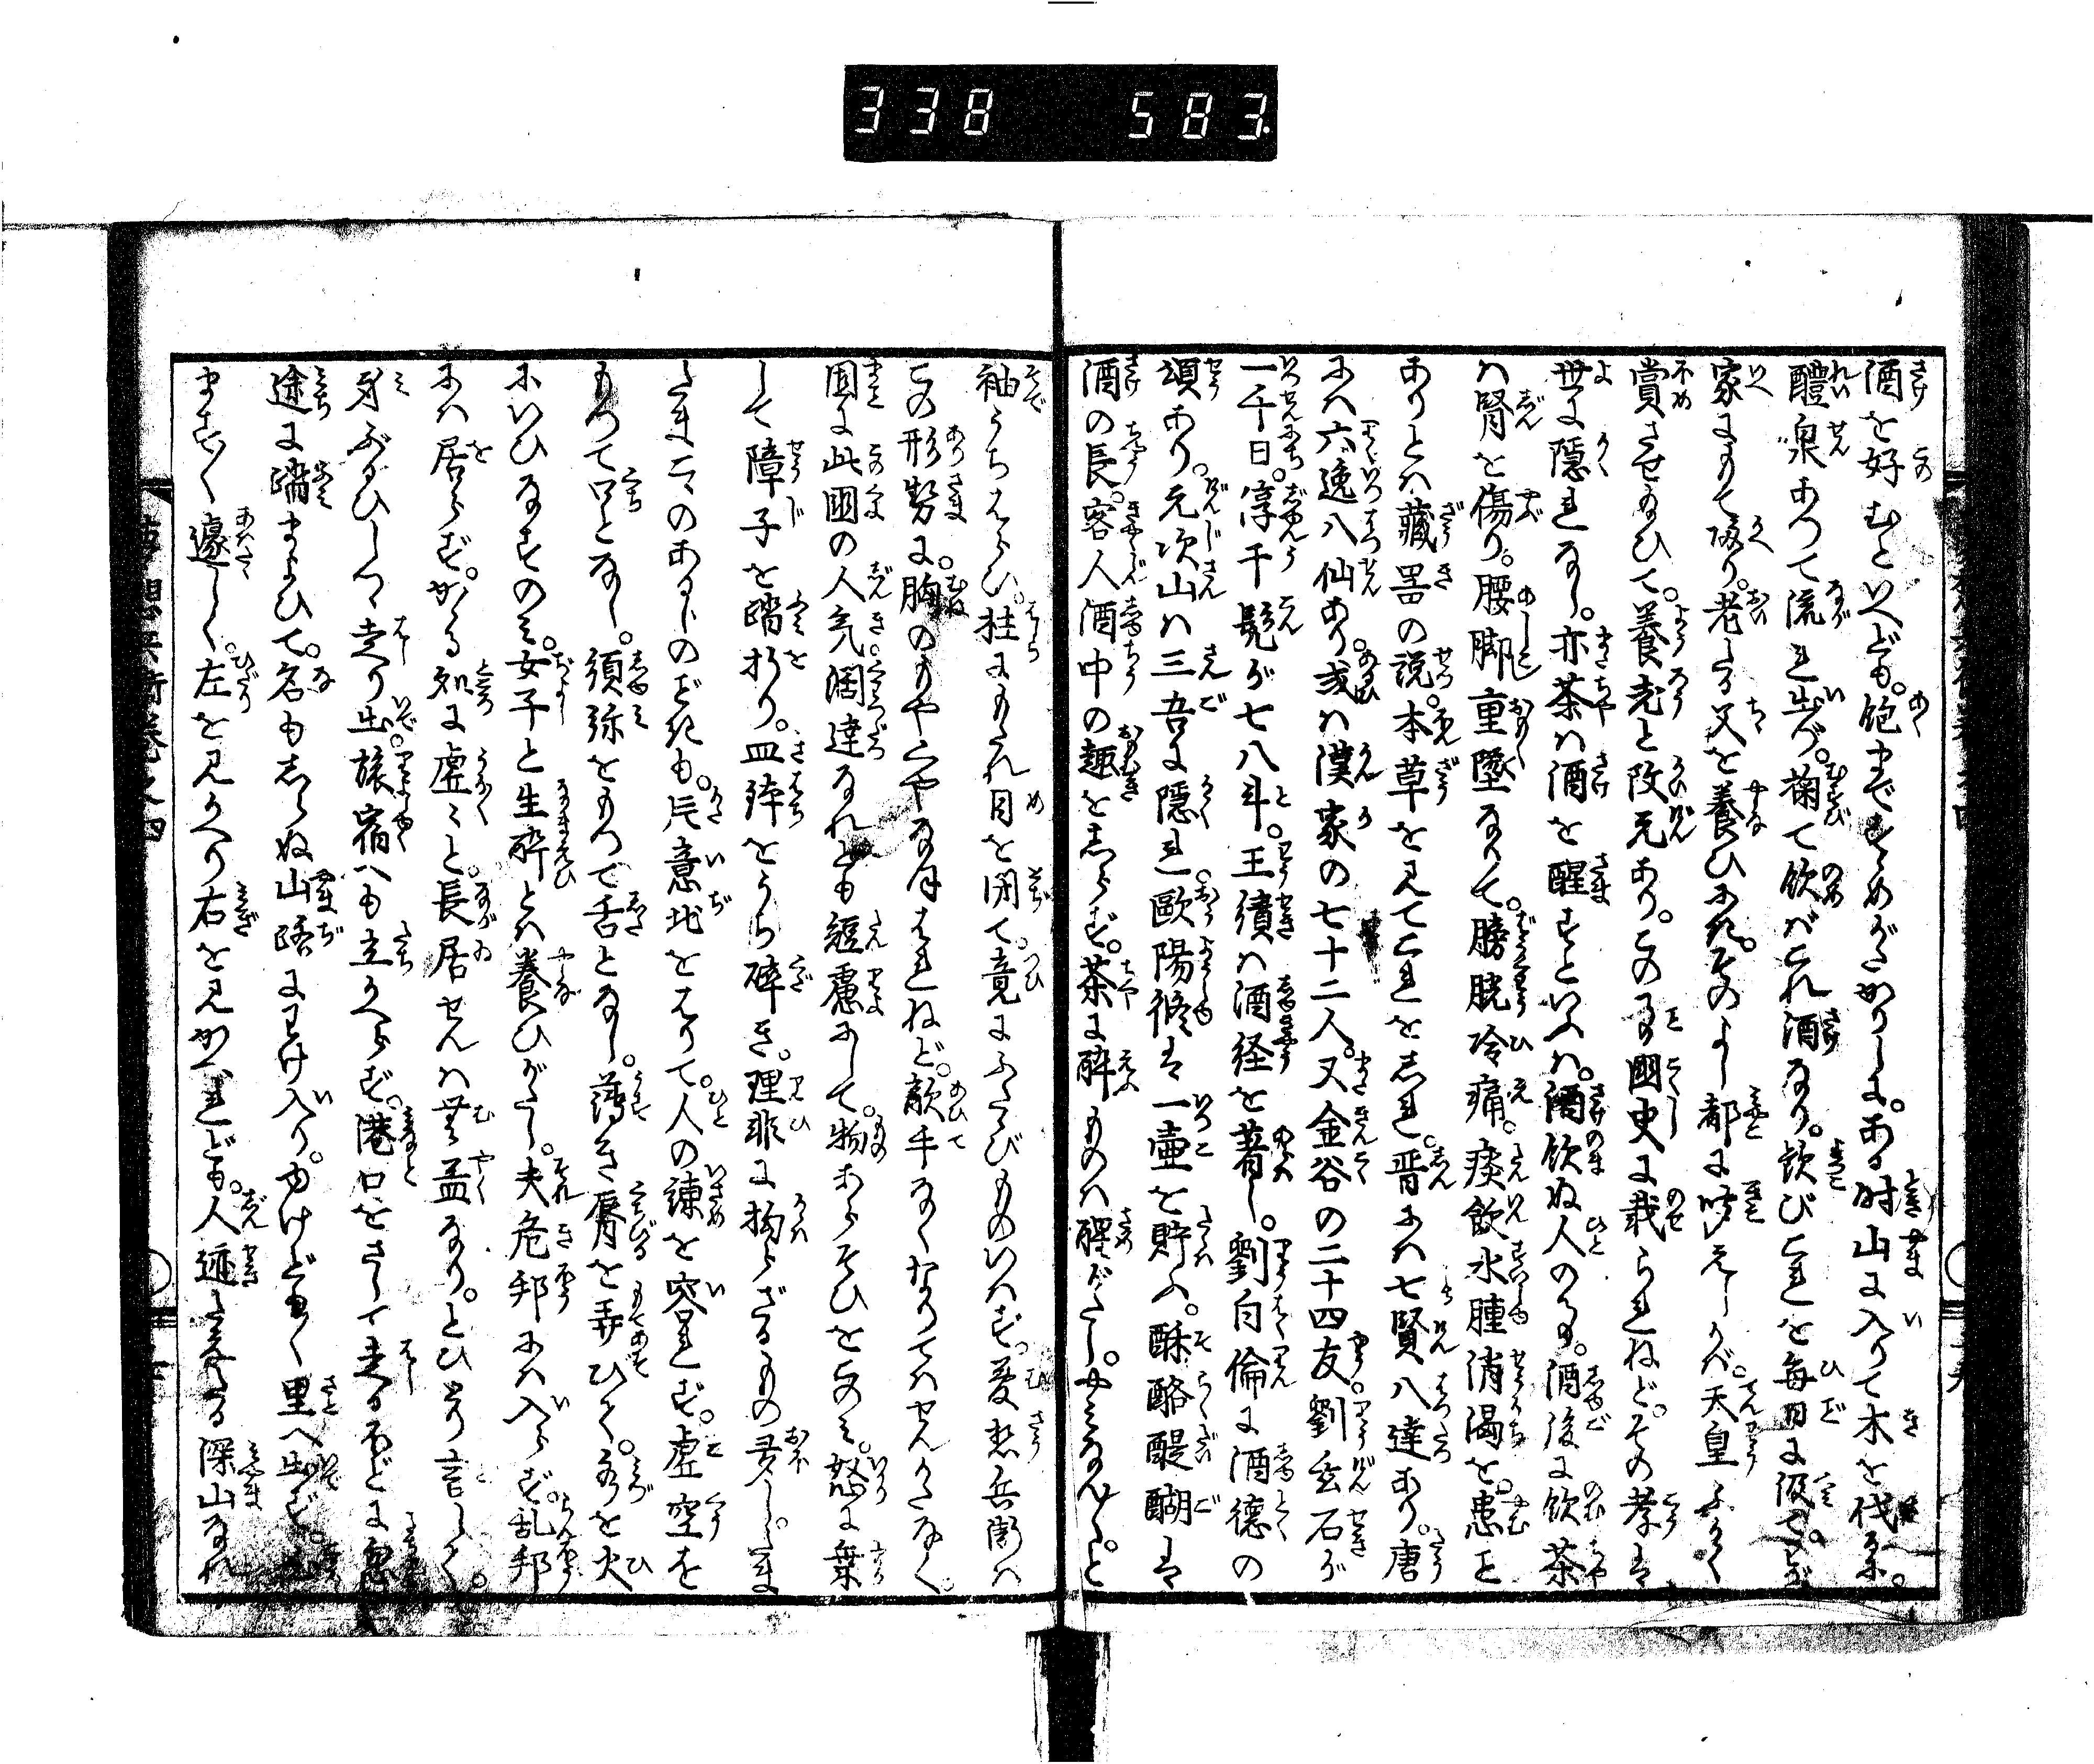 338 583
酒を好むといへども。飽までもとめがたかりしに。ある時山に入りて木を伐るに。
醴泉あつて流れ出づ。掬て飲ばこれ酒なり。歓びこれを毎日に汲て。わが
家にもて帰り。老たる父を養ひにき。そのよし都に聞えしかば。天皇ふかく
賞させ給ひて。養老と改元あり。この事國史に載られねど。その孝は
世に隱れなし。亦茶は酒を醒すといへば。酒飲ぬ人の事。酒後に飲茶
は腎を傷り。腰脚重墜なりて。膀胱冷痛。痰飲水腫消渇を。患と
ありとは藏器の説。本草を見てこれをしれ。晋には七賢八達あり。唐
には六逸八仙あり。或は漢家の七十二人。又金谷の二十四友劉玄石が
一千日。淳于髡が七八斗。王績は酒経を著し。劉白倫に酒徳の
頌あり。元次山は三吾に隱れ。歐陽修は一壷を貯ふ。酥酪醍醐は
酒の長。客人酒中の趣をしらず。茶に醉ものは醒がたし。やみなん〳〵と
袖うちはらひ。柱にもたれ目を閉て。竟にふたゝびものいはず。夢想兵衛は
この形勢に。胸のもやくやる方はれねど。敵手なくなりてはせんかたなく。
固に此國の人氣。濶達なれども短慮にして。物あらそひをこのみ。怒に乗
して障子を踏折り。皿鉢をうち碎き。理非に拘らざるもの多し。たま
たまこゝのあるじのごときも。片意地をはりて。人の諫を容れず。虚空を
もつて口となし。須弥をもつて舌となし。薄き脣を弄ひて。水を火
にいひなすのみ。女子と生醉とは養ひがたし。夫危邦には入らず。乱邦
には居らず。かゝる処に虚々と。長居せんは無益なり。とひとり言しつ。
身ぶるひしつゝ走り出。旅宿へも立かへらず。港口をさして走るほどに忽
途に踏まよひて。名もしらぬ山路にわけ入り。ゆけどもゆけども里へ出ず。
ますます遽しく。左を見かへり右を見かへれども。人迹たえたる深山なれ